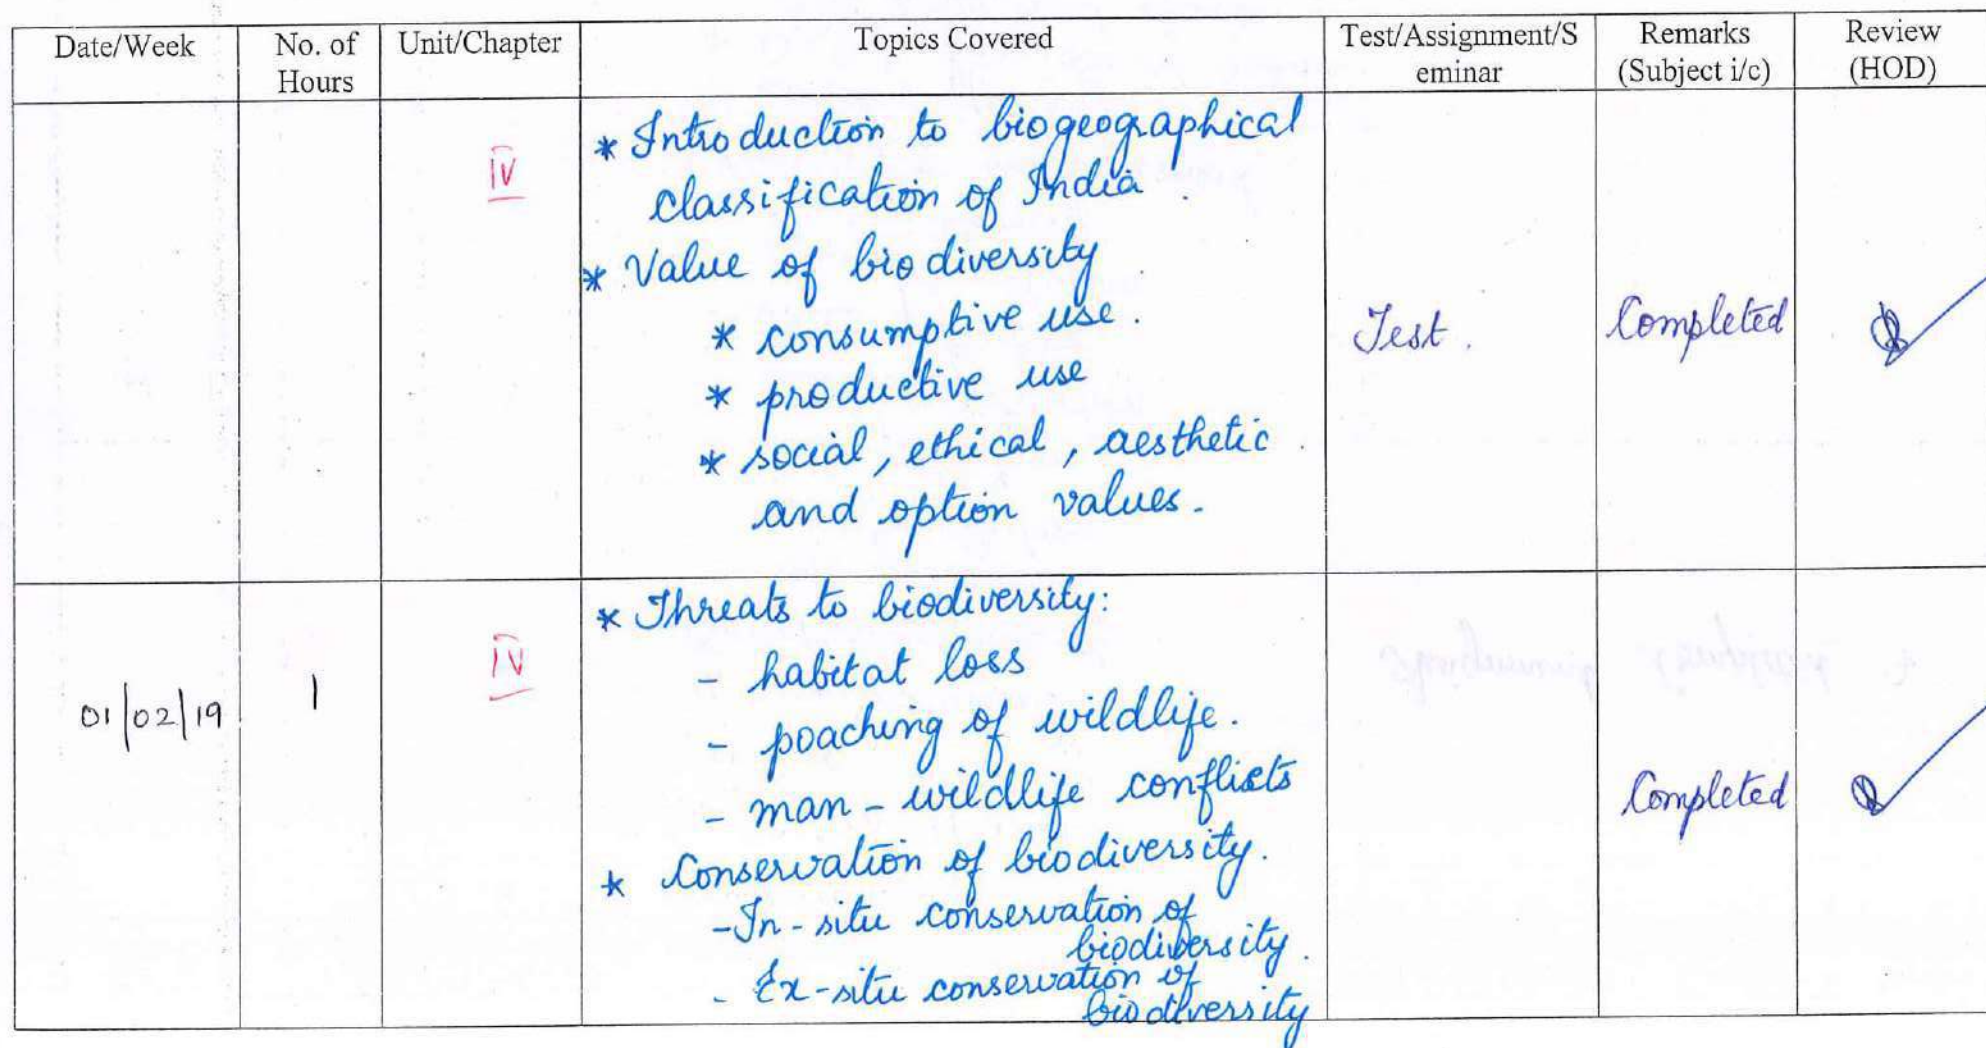 Date/Week No. of Hours Unit/Chapter Topics Covered Test/Assignment/S eminar Remarks (Subject i/c) Review (HOD)
IV
* Introduction to biogeographical
classification of India.
* Value of biodiversity
* consumptive use.
* productive use
* social, ethical, aesthetic
and option values.
Test.
Completed
01/02/19
1
IV
* Threats to biodiversity:
- habitat loss
- poaching of wildlife.
- man-wildlife conflicts
* Conservation of biodiversity.
- In-situ conservation of
biodiversity.
- Ex-situ conservation of
biodiversity
Completed